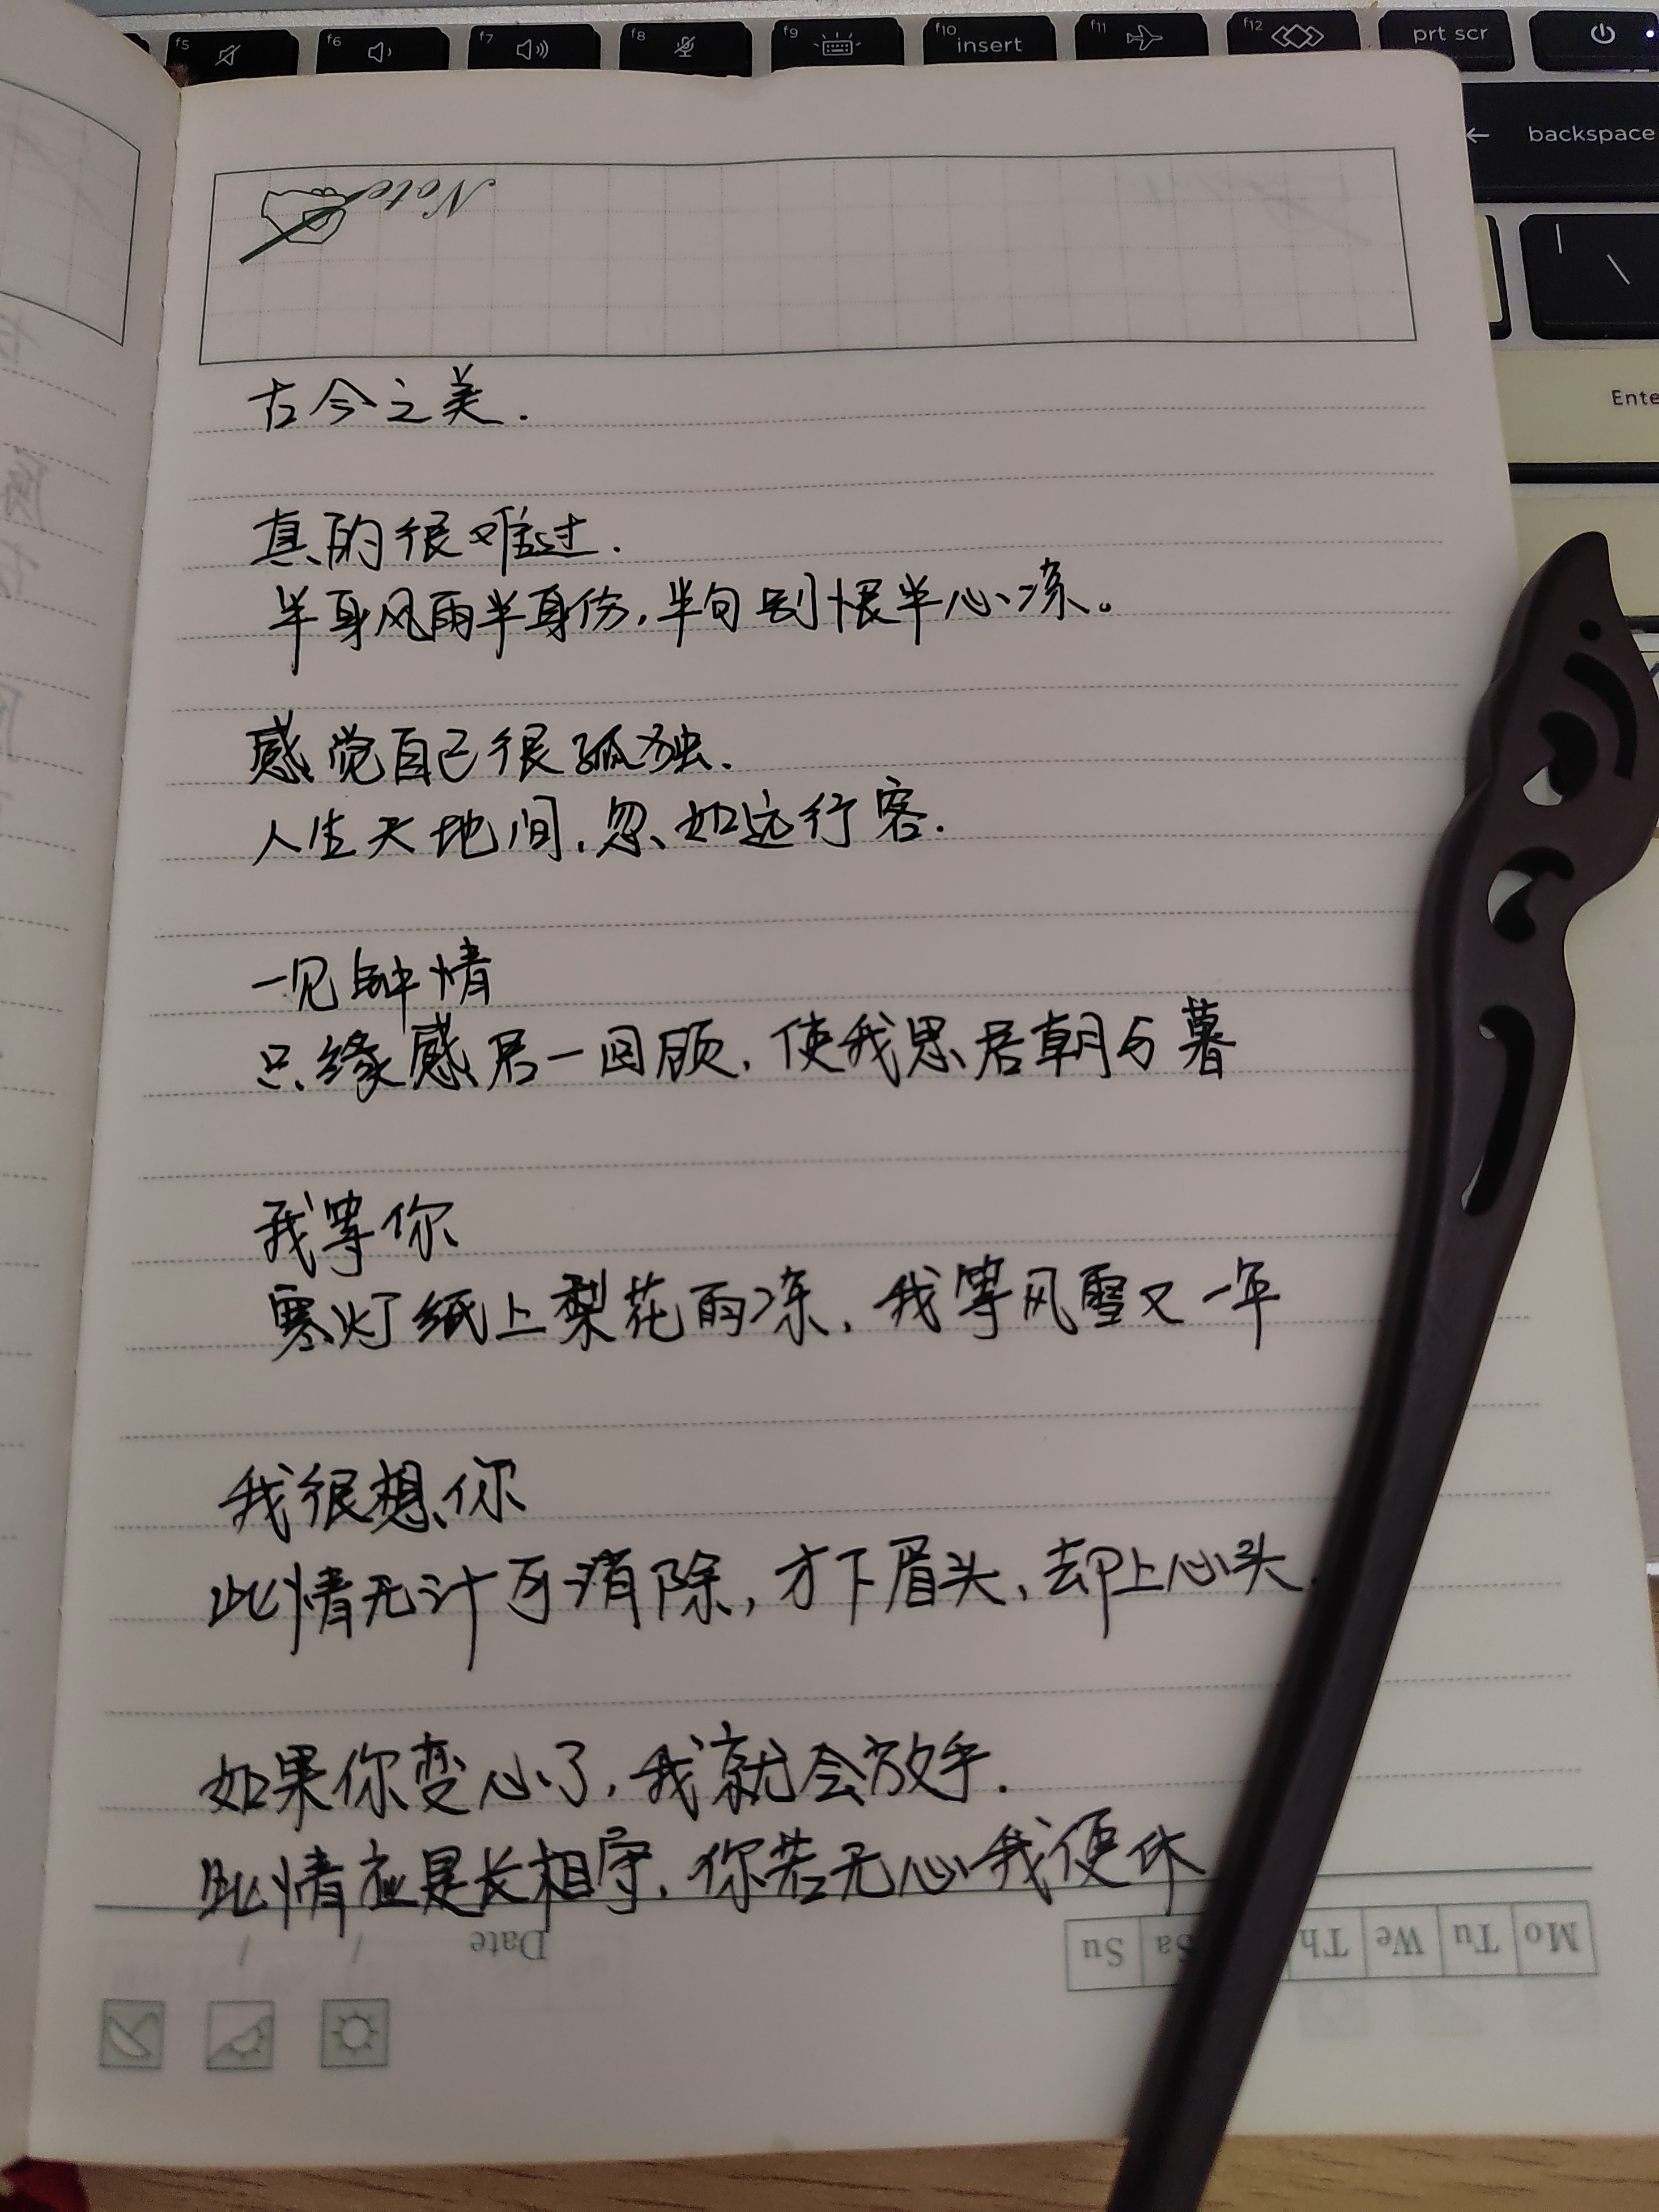 f5 f6 f7 f8 f9 f10 insert f11 f12 prt scr
backspace
Note
\
Ente
古今之美.
真的很难过.
半身风雨半身伤,半句别恨半心凉。
感觉自己很孤独.
人生天地间,忽如远行客.
一见钟情
只缘感君一回顾,使我思君朝与暮
我等你
寒灯纸上梨花雨凉,我等风雪又一年
我很想你
此情无计可消除,才下眉头,却上心头.
如果你变心了,我就会放手.
此情应是长相守,你若无心我便休
Date / /
Mo Tu We Th Sa Su